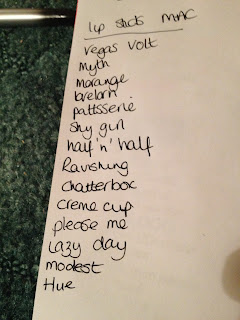 lip sticks MAC
Vegas Volt
Myth
Morange
lovelorn
pattsserie
Shy girl
half 'n' half
Ravishing
Chatterbox
Creme cup
please me
Lazy day
modest
Hue